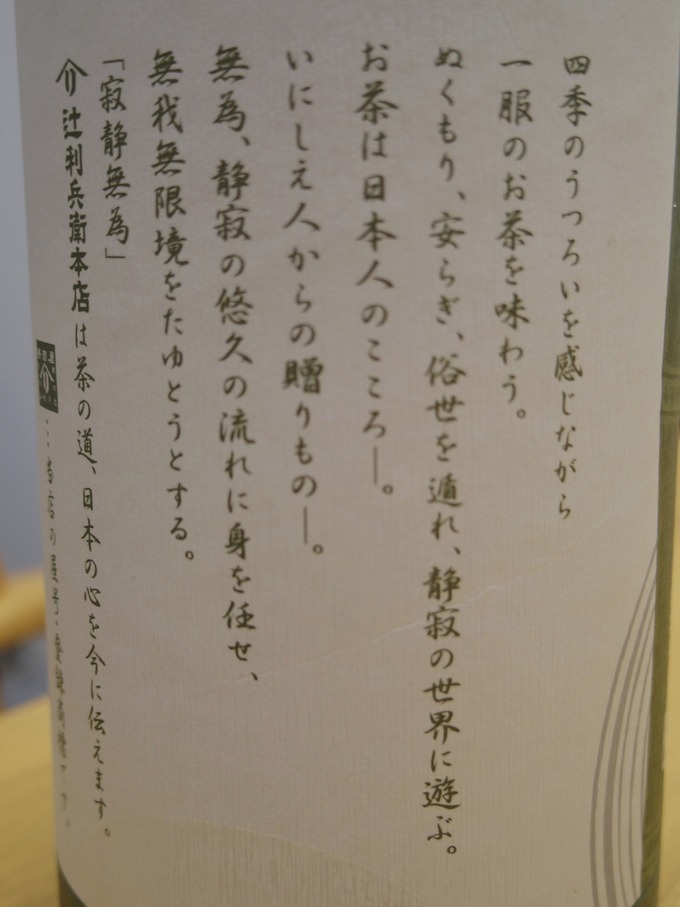 四季のうつろいを感じながら
一服のお茶を味わう。
ぬくもり、安らぎ、俗世を遁れ、静寂の世界に遊ぶ。
お茶は日本人のこころ―。
いにしえ人からの贈りもの―。
無為、静寂の悠久の流れに身を任せ、
無我無限境をたゆとうとする。
「寂静無為」
辻利兵衛本店は茶の道、日本の心を今に伝えます。
…当店の屋号・登録商標です。